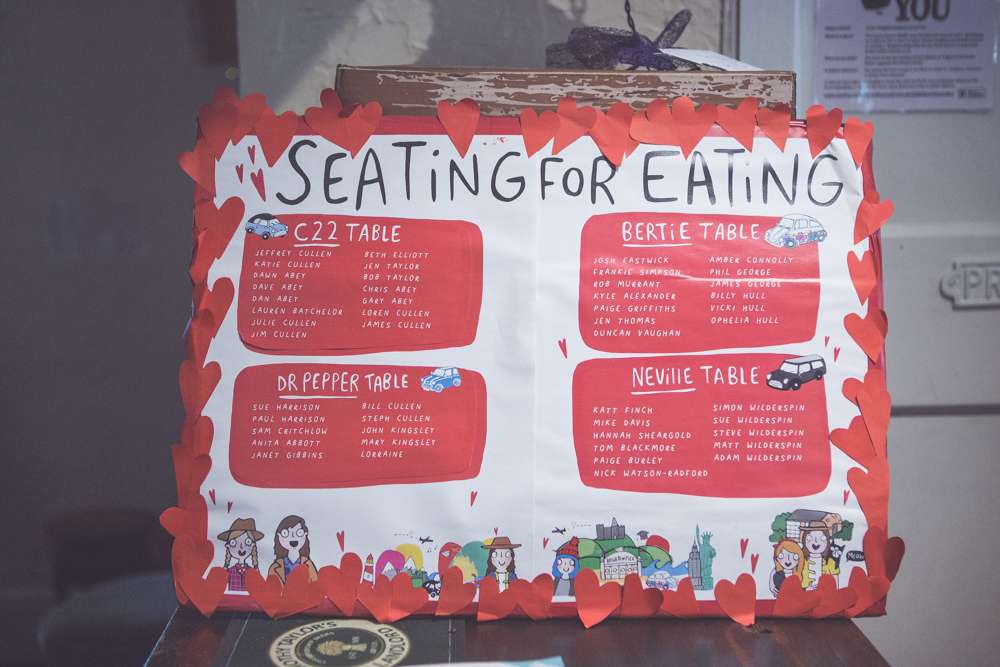 YOU
SEATiNG FOR EATiNG
C22 TABLE
JEFFREY CULLEN
KATIE CULLEN
DAWN ABEY
DAVE ABEY
DAN ABEY
LAUREN BATCHELOR
JULIE CULLEN
JIM CULLEN
BETH ELLIOTT
JEN TAYLOR
BOB TAYLOR
CHRIS ABEY
GARY ABEY
LOREN CULLEN
JAMES CULLEN
BERTiE TABLE
JOSH EASTWICK
FRANKIE SIMPSON
ROB MURRANT
KYLE ALEXANDER
PAIGE GRIFFITHS
JEN THOMAS
DUNCAN VAUGHAN
AMBER CONNOLLY
PHIL GEORGE
JAMES GEORGE
BILLY HULL
VICKI HULL
OPHELIA HULL
DR PEPPER TABLE
SUE HARRISON
PAUL HARRISON
SAM CRITCHLOW
ANITA ABBOTT
JANET GIBBINS
BILL CULLEN
STEPH CULLEN
JOHN KINGSLEY
MARY KINGSLEY
LORRAINE
NEViLLE TABLE
KATY FINCH
MIKE DAVIS
HANNAH SHEARGOLD
TOM BLACKMORE
PAIGE BURLEY
NICK WATSON-RADFORD
SIMON WILDERSPIN
SUE WILDERSPIN
STEVE WILDERSPIN
MATT WILDERSPIN
ADAM WILDERSPIN
MEOW